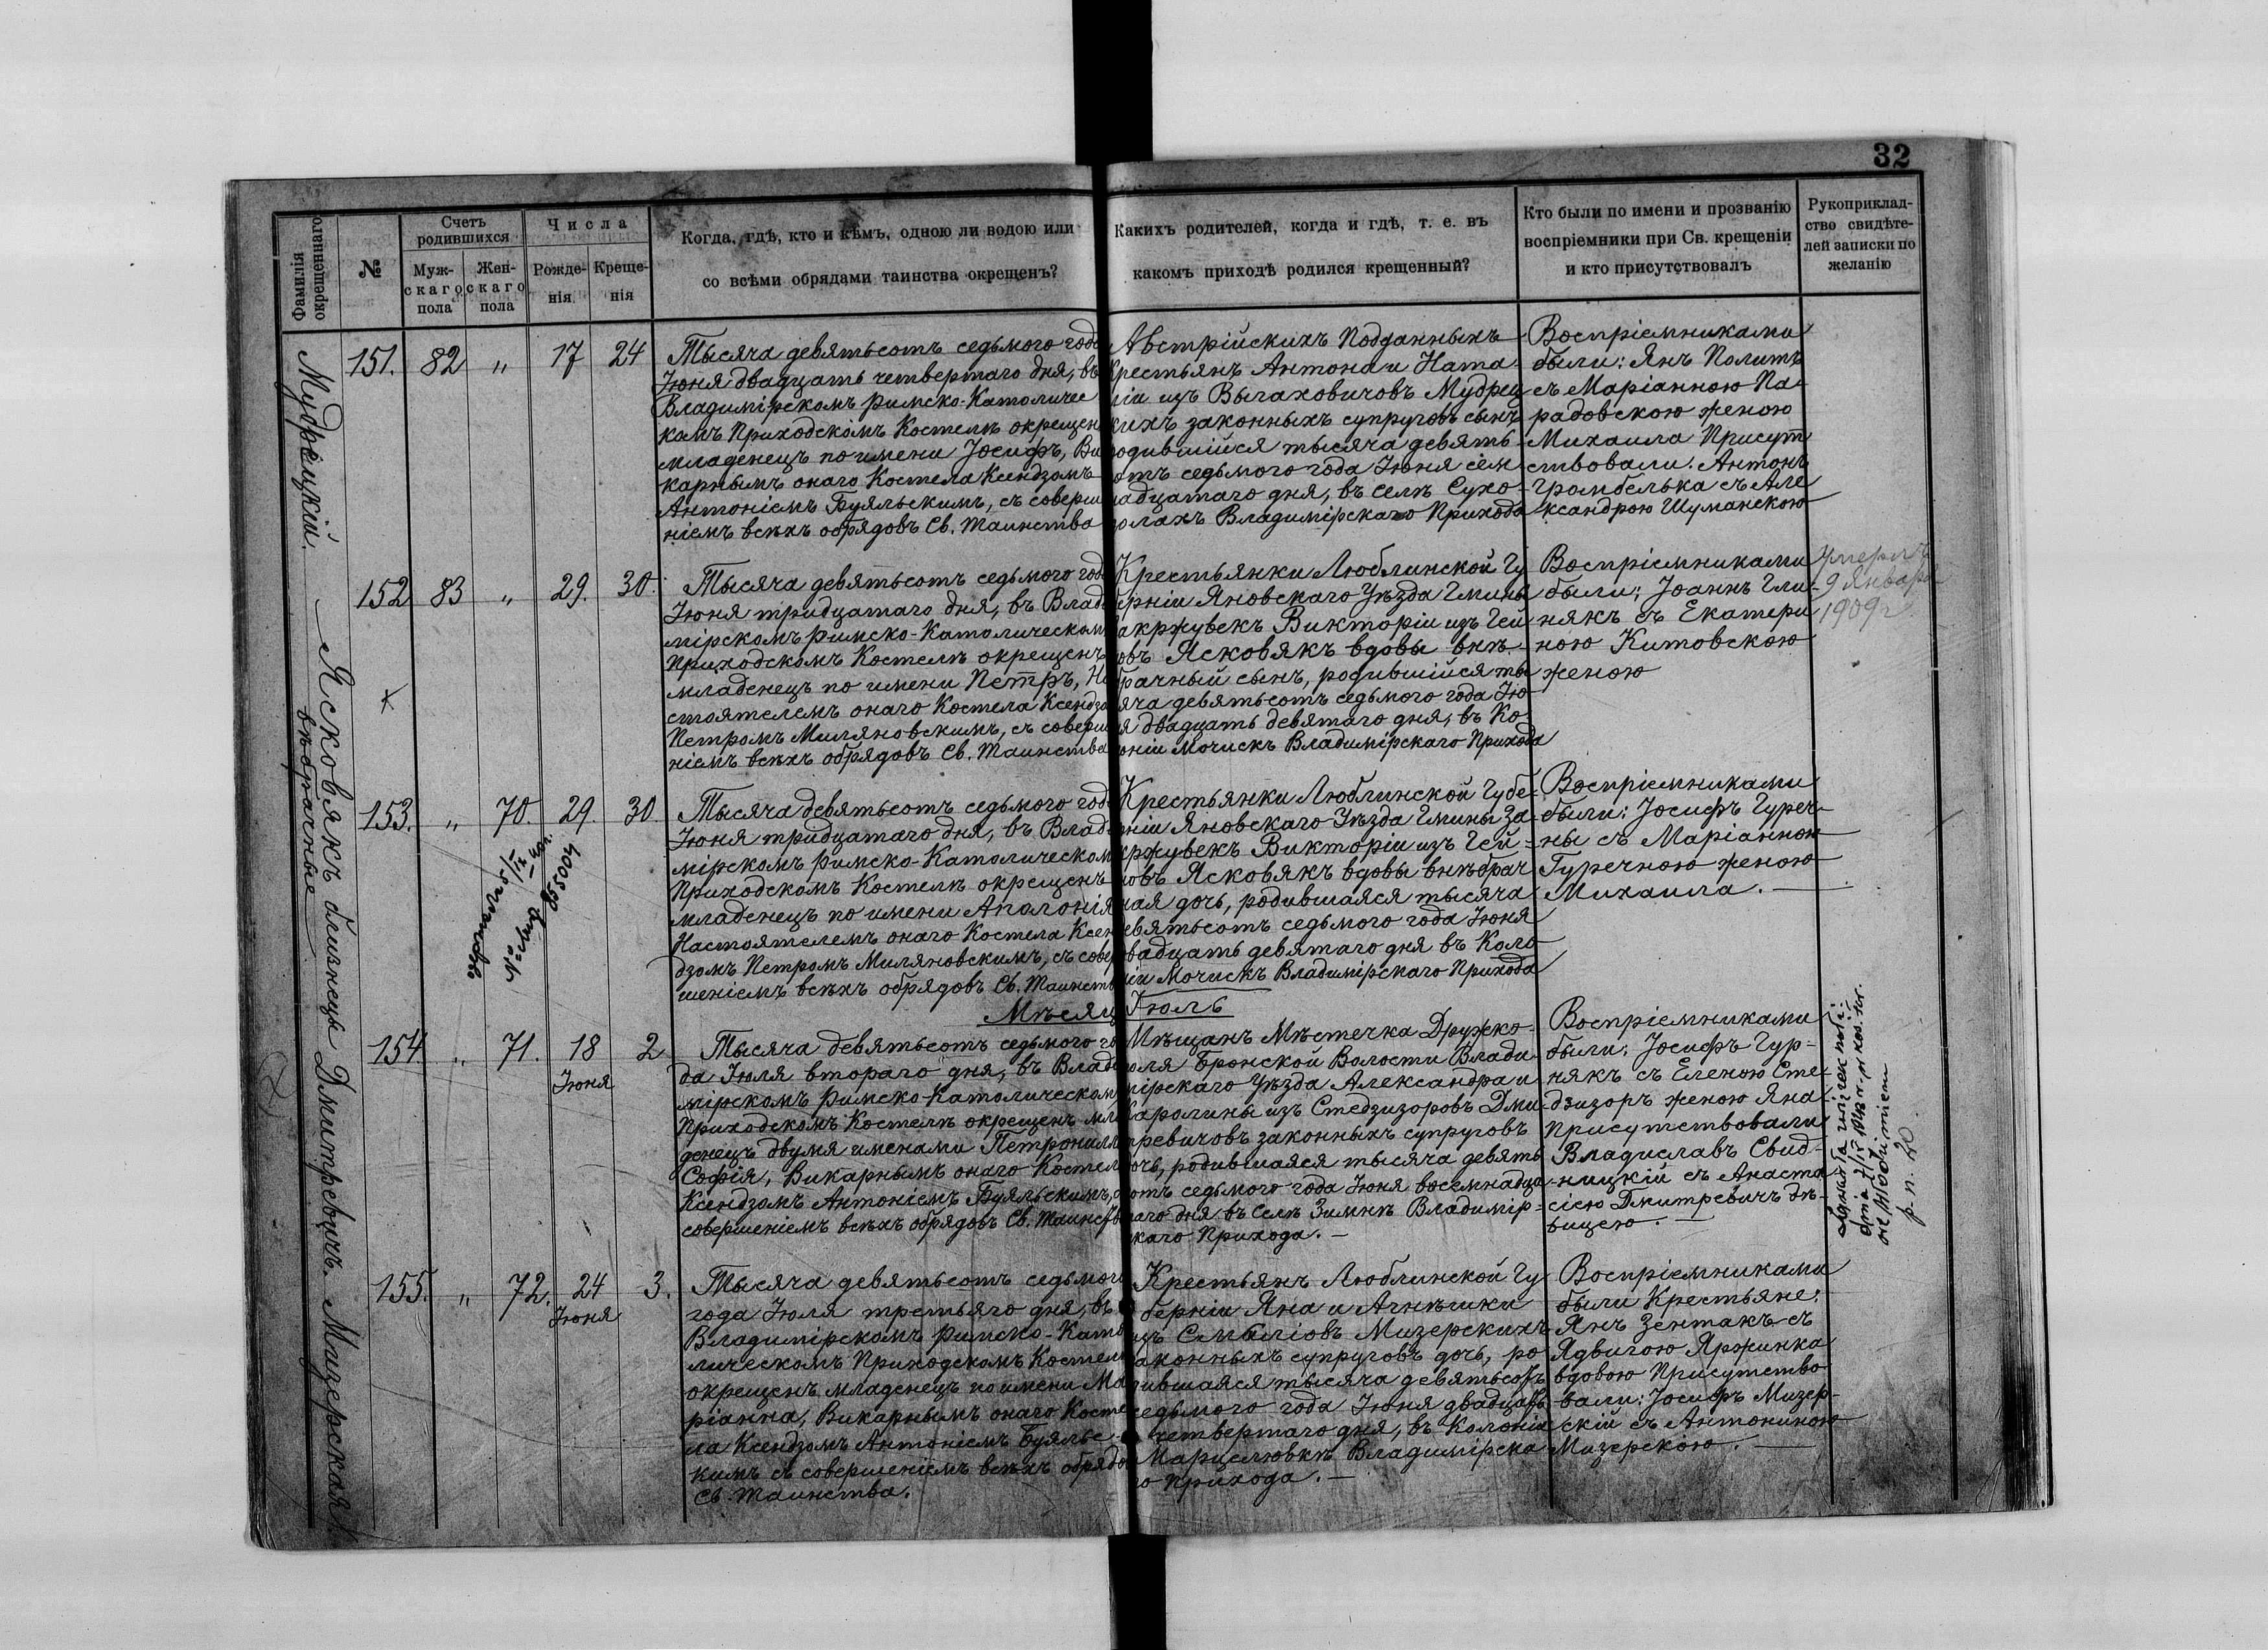 32
Фамилія окрещеннаго
№
Счетъ родившихся
Муж-
скаго
пола
Жен-
скаго
пола
Числа
Рожде-
нія
Креще-
нія
Когда, гдѣ, кто и кѣмъ, одною ли водою или
со всѣми обрядами таинства окрещенъ?
Какихъ родителей, когда и гдѣ, т. е. въ
какомъ приходѣ родился крещенный?
Кто были по имени и прозванію
воспріемники при Св. крещеніи
и кто присутствовалъ
Рукоприклад-
ство свидѣте-
лей записки по
желанію
Мудрецкій.
151. 82 „ 17 24
Тысяча девятьсотъ седьмого года
Іюня двадцать четвертаго дня, въ
Владимірскомъ римско-Католичес
комъ Приходскомъ Костелѣ окрещенъ
младенецъ по имени Іосифъ, Ви
карнымъ онаго Костела Ксендзомъ
Антоніемъ Буяльскимъ, съ соверше
ніемъ всѣхъ обрядовъ Св. Таинства
Австрійскихъ Подданныхъ
Крестьянъ Антона и Ната
ліи изъ Вылаховичовъ Мудрец
кихъ законныхъ супруговъ сынъ
родившійся тысяча девять-
сотъ седьмого года Іюня сем
надцатаго дня, въ селѣ Сухо-
долахъ Владимірскаго Прихода
Воспріемниками
были: Янъ Политъ
съ Маріанною Па-
радовскою женою
Михаила Присут
ствовали: Антонъ
Громбелька съ Але
ксандрою Шуманскою
Ясковякъ близнецы
внѣбрачные
152 83 „ 29. 30.
Тысяча девятьсотъ седьмого года
Іюня тридцатаго дня, въ Влади
мірскомъ римско-Католическомъ
Приходскомъ Костелѣ окрещенъ
младенецъ по имени Петръ, На
стоятелемъ онаго Костела Ксендзо
Петромъ Миляновскимъ, съ соверше
ніемъ всѣхъ обрядовъ Св. Таинства
Крестьянки Люблинской Гу
берніи Яновскаго Уѣзда Гмины
Закржувекъ Викторіи изъ Гей
новъ Ясковякъ вдовы внѣ-
брачный сынъ, родившійся ты
сяча девятьсотъ седьмого года Ію
ня двадцать девятаго дня, въ Ко-
лоніи Мочискъ Владимірскаго Прихода
Воспріемниками
были: Іоаннъ Гли-
някъ съ Екатери
ною Китовскою
женою
Умеръ
9 Января
1909 г.
153. „ 70. 29. 30
Тысяча девятьсотъ седьмого года
Іюня тридцатаго дня, въ Влади
мірскомъ римско-Католическомъ
Приходскомъ Костелѣ окрещенъ
младенецъ по имени Аполонія
Настоятелемъ онаго Костела Ксен
дзомъ Петромъ Миляновскимъ, съ совер
шеніемъ всѣхъ обрядовъ Св. Таинства
Крестьянки Люблинской Губе-
рніи Яновскаго Уѣзда Гмины За-
кржувекъ Викторіи изъ Гей-
новъ Ясковякъ вдовы внѣбрач
ная дочь, родившаяся тысяча
девятьсотъ седьмого года Іюня
двадцать девятаго дня въ Коло
ніи Мочискъ Владимірскаго Прихода
Воспріемниками
были: Іосифъ Гуреч-
ны съ Маріанною
Гуречною женою
Михаила.
Мѣсяцъ Іюль
Дмитревичъ.
154 „ 71. 18 2
Іюня
Тысяча девятьсотъ седьмого го
да Іюля второго дня, въ Влади
мірскомъ римско-Католическомъ
Приходскомъ Костелѣ окрещенъ мла
денецъ двумя именами Петронилла
Софія, Викарнымъ онаго Костела
Ксендзомъ Антоніемъ Буяльскимъ, съ
совершеніемъ всѣхъ обрядовъ Св. Таинства
Мѣщанъ Мѣстечка Дружко-
поля Бронской Волости Влади-
мірскаго Уѣзда Александра и
Каролины изъ Стедзизоровъ Дми-
тревичовъ законныхъ супруговъ
дочь, родившаяся тысяча девять
сотъ седьмого года Іюня восемнадца
таго дня, въ селѣ Зимнѣ Владимір-
скаго Прихода.
Воспріемниками
были: Іосифъ Гур-
някъ съ Еленою Сте-
дзизоръ женою Яна
Присутствовали
Владиславъ Свид-
ницкій съ Анаста
сіею Дмитревичъ дѣ-
вицею.
Мизерская.
155. „ 72. 24 3.
Іюня
Тысяча девятьсотъ седьмого
года Іюля третьяго дня, въ
Владимірскомъ римско-Като
лическомъ Приходскомъ Костелѣ
окрещенъ младенецъ по имени Ма
ріанна, Викарнымъ онаго Косте
ла Ксендзомъ Антоніемъ Буяльс-
кимъ съ совершеніемъ всѣхъ обрядо
Св. Таинства.
Крестьянъ Люблинской Гу
берніи Яна и Агнѣшки
изъ Мизерскихъ
законныхъ супруговъ дочь, ро
дившаяся тысяча девятьсотъ
седьмого года Іюня двадцать
четвертаго дня, въ Колоніи
Марцелювкѣ Владимірска
го Прихода.
Воспріемниками
были Крестьяне:
Янъ Зентакъ съ
Ядвигою Яржинка
вдовою Присутство
вали: Іосифъ Мизер-
скій съ Антониною
Мизерскою.